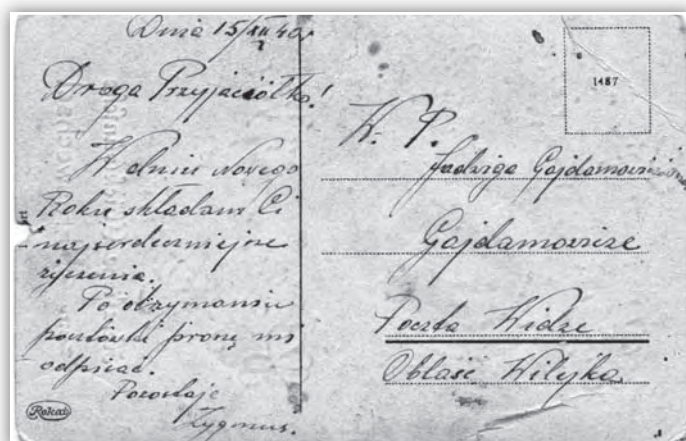 Dnia 15/XII 40r
Droga Przyjaciółko!
W dniu Nowego
Roku składam Ci
najserdeczniejsze
życzenia.
Po otrzymaniu
pocztówki proszę mi
odpisać.
Pozostaję
Zygmunt.
Rokat
1487
W. P.
Jadwiga Gajdamowicz
Gajdamowicze
Poczta Widze
Obłaść Wilejka